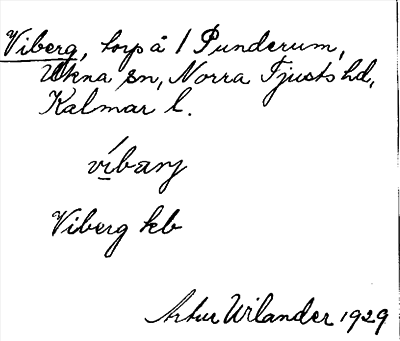 Viberg, torp å 1 Punderum,
Ukna sn, Norra Tjusts hd,
Kalmar l.
víbærj
Viberg kb
Artur Wilander 1929